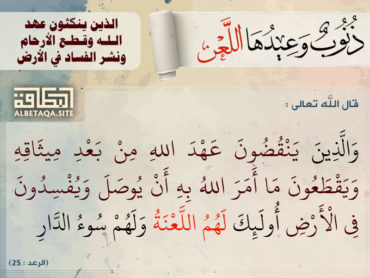 ذُنُوبٌ وَعِيدُهَا اللَّعْن
الذين ينكثون عهد
الله وقطع الأرحام
ونشر الفساد في الأرض
البطاقة
ALBETAQA.SITE
قال الله تعالى :
وَالَّذِينَ يَنْقُضُونَ عَهْدَ اللهِ مِنْ بَعْدِ مِيثَاقِهِ
وَيَقْطَعُونَ مَا أَمَرَ اللهُ بِهِ أَنْ يُوصَلَ وَيُفْسِدُونَ
فِي الْأَرْضِ أُولَئِكَ لَهُمُ اللَّعْنَةُ وَلَهُمْ سُوءُ الدَّارِ
(الرعد : 25)